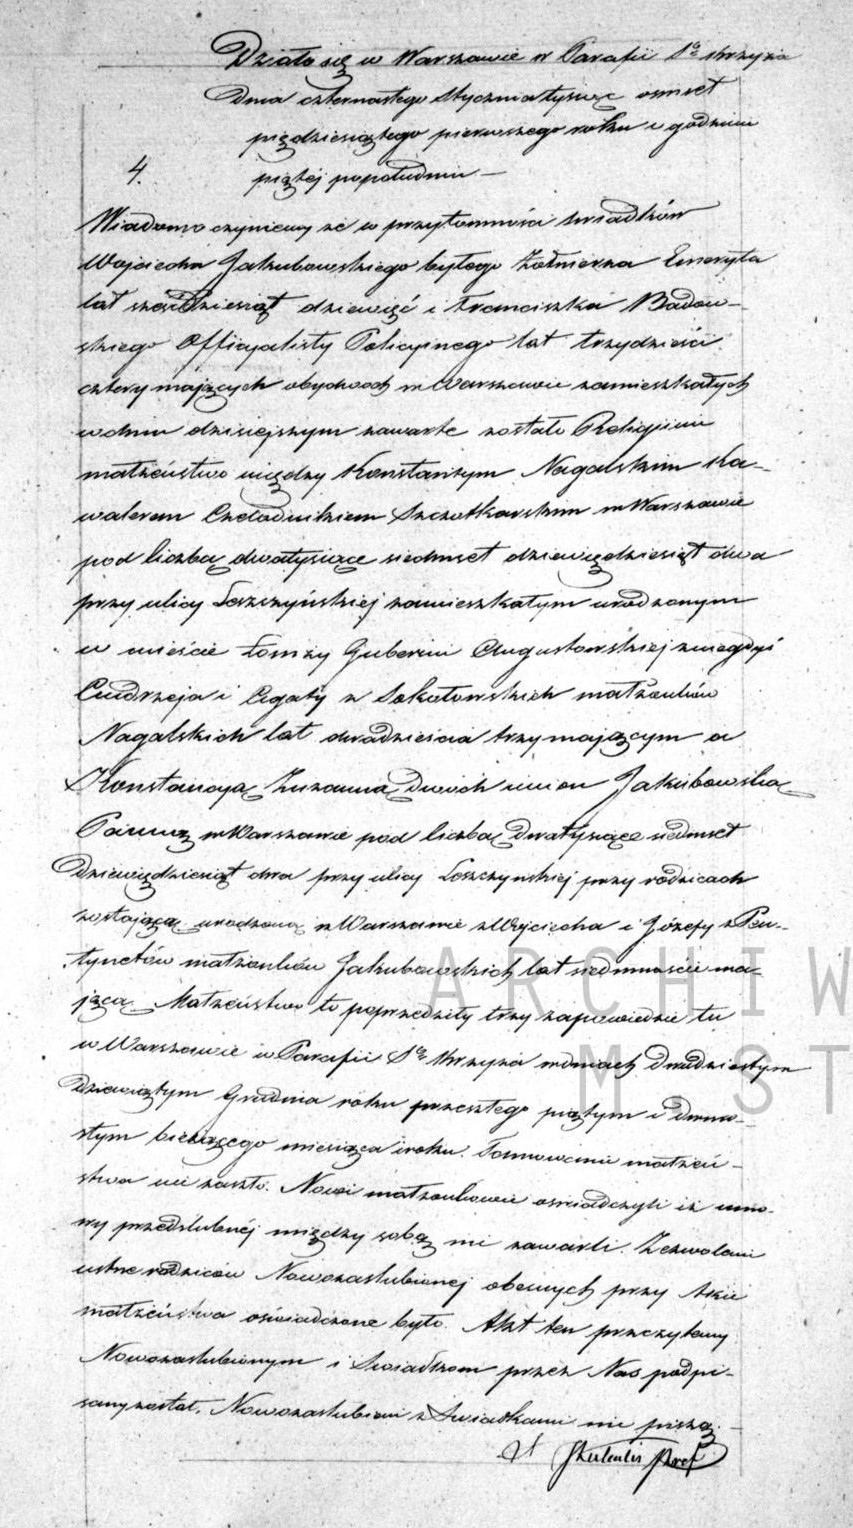 Działo się w Warszawie w Parafii Sgo Krzyża
Dnia czternastego Stycznia tysiąc osmset
pięćdziesiątego pierwszego roku o godzinie
4.
piątej popołudniu —
Wiadomo czyniemy że w przytomności świadków
Wojciecha Jakubowskiego byłego Żołnierza Emeryta
lat sześćdziesiąt dziewięć i Franciszka Badow-
skiego Officjalisty Policyjnego lat trzydzieści
cztery mających obydwóch w Warszawie zamieszkałych
w dniu dzisiejszym zawarte zostało Religijne
małżeństwo między Konstantym Nagalskim Ka-
walerem Czeladnikiem Szczotkarskim w Warszawie
pod liczbą dwatysiące siedmset dziewięćdziesiąt dwa
przy ulicy Leszczyńskiej zamieszkałym urodzonym
w mieście Łomży Gubernii Augustowskiej z niegdyś
Andrzeja i Agaty z Sokołowskich małżonków
Nagalskich lat dwadzieścia trzy mającym a
Konstancyą Zuzanną dwóch imion Jakubowską
Panną w Warszawie pod liczbą dwatysiące siedmset
dziewięćdziesiąt dwa przy ulicy Leszczyńskiej przy rodzicach
zostającą urodzoną w Warszawie z Wojciecha i Józefy z
małżonków Jakubowskich lat siedmnaście ma-
jącą. Małżeństwo to poprzedziły trzy zapowiedzie tu
w Warszawie w Parafii Sgo Krzyża w dniach dwudziestym
dziewiątym Grudnia roku przeszłego piątym i dwuna-
stym bieżącego miesiąca i roku. Tamowanie małżeń-
stwa nie zaszło. Nowi małżonkowie oświadczyli iż umo-
wy przedślubnéj między sobą nie zawarli. Zezwolenie
ustne rodziców Nowozaślubionej obecnych przy Akcie
małżeństwa oświadczone było. Akt ten przeczytany
Nowozaślubionym i Świadkom przez Nas podpi-
sany został. Nowozaślubieni z Świadkami nie piszą.
ARCHIW
M.ST